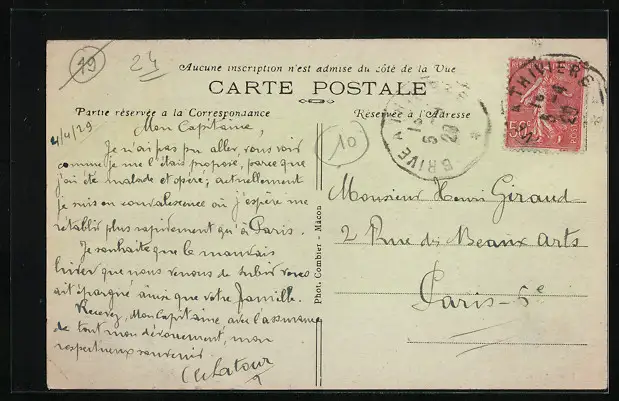 19
24
Aucune inscription n'est admise du côté de la Vue
CARTE POSTALE
Partie réservée a la Correspondance
Réservée à l'Adresse
4/4/29
Mon Capitaine,
Je n'ai pas pu aller, vous voir
comme je me l'étais proposé, parce que
j'ai été malade et opéré; actuellement
je suis en convalescence où j'espère me
rétablir plus rapidement qu'à Paris.
Je souhaite que le mauvais
hiver que nous venons de subir vous
ait épargné ainsi que votre famille.
Recevez, Mon Capitaine, avec l'assurance
de tout mon dévouement, mon
respectueux souvenir
Latour
Phot. Combier - Mâcon
10
BRIVE A
50c
POSTES
Monsieur Henri Giraud
2 Rue des Beaux Arts
Paris-6e